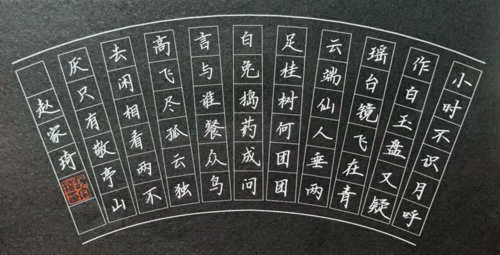 小时不识月呼
作白玉盘又疑
瑶台镜飞在青
云端仙人垂两
足桂树何团团
白兔捣药成问
言与谁餐众鸟
高飞尽孤云独
去闲相看两不
厌只有敬亭山
赵家琦